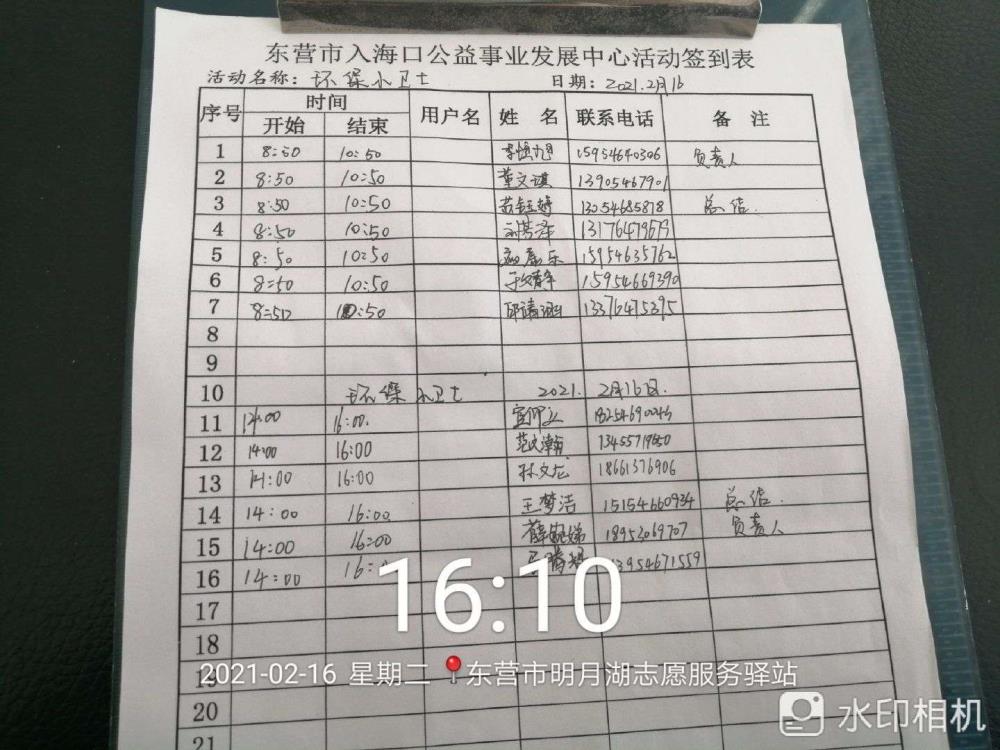 东营市入海口公益事业发展中心活动签到表
活动名称: 环保小卫士 日期: 2021.2月16
序号 时间 用户名 姓 名 联系电话 备 注
开始 结束
1 8:50 10:50 15954640306 负责人
2 8:50 10:50 董文琪 13905467901
3 8:50 10:50 苏钰婷 13054685818 总结.
4 8:50 10:50 刘芳泽 13176479679
5 8:50 10:50 15954635762
6 8:50 10:50 15954669390
7 8:50 10:50 13376475395
8
9
10 环保小卫士 2021. 2月16日.
11 14:00 16:00.
12 14:00 16:00 13455719650
13 14:00 16:00 林文龙 18661376906
14 14:00 16:00 王梦洁 15154660934 总结.
15 14:00 16:00 18953069707 负责人
16 14:00 3954671559
17
18
19
20
21
16:10
2021-02-16 星期二 东营市明月湖志愿服务驿站
水印相机